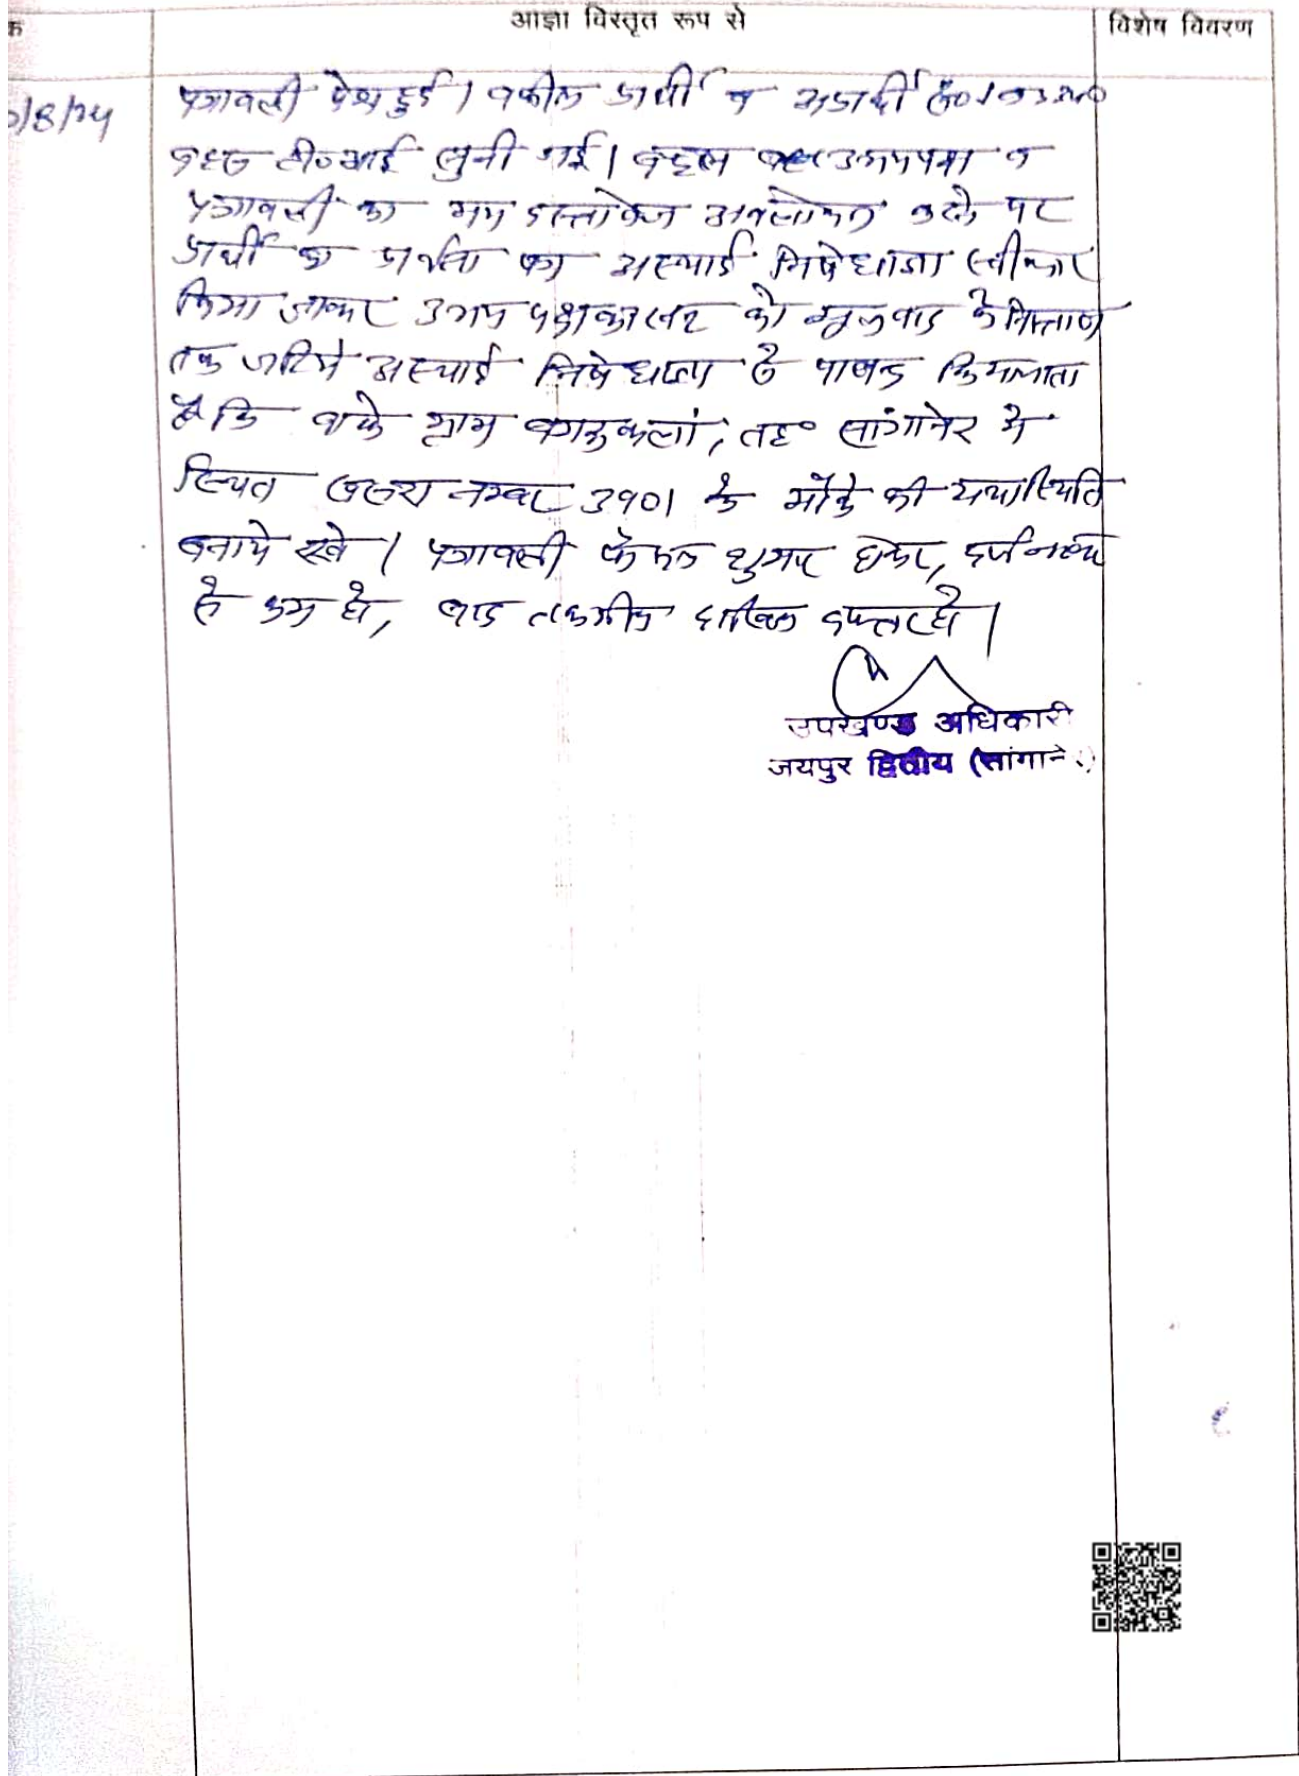 क
आज्ञा विस्तृत रूप से
विशेष विवरण
/8/24
पत्रावली पेश हुई। वकील प्रार्थी व अप्रार्थी सं० 1
बहस टी०आई सुनी गई। बहस उभयपक्ष व
पत्रावली का मय दस्तावेज अवलोकन करने पर
प्रार्थी का प्रार्थना पत्र अस्थाई निषेधाज्ञा स्वीकार
किया जाकर उभय पक्षकारान को मूलवाद के निस्तारण
तक जरिये अस्थाई निषेधाज्ञा से पाबन्द किया जाता
है कि वाके ग्राम बगरुकलां, तह० सांगानेर मे
स्थित खसरा नम्बर 3901 के मौके की यथास्थिति
बनाये रखे। पत्रावली फैसल शुमार होकर, दर्ज नम्बर
से कम हो, बाद तकमील दाखिल दफ्तर हो।
उपखण्ड अधिकारी
जयपुर द्वितीय (सांगाने